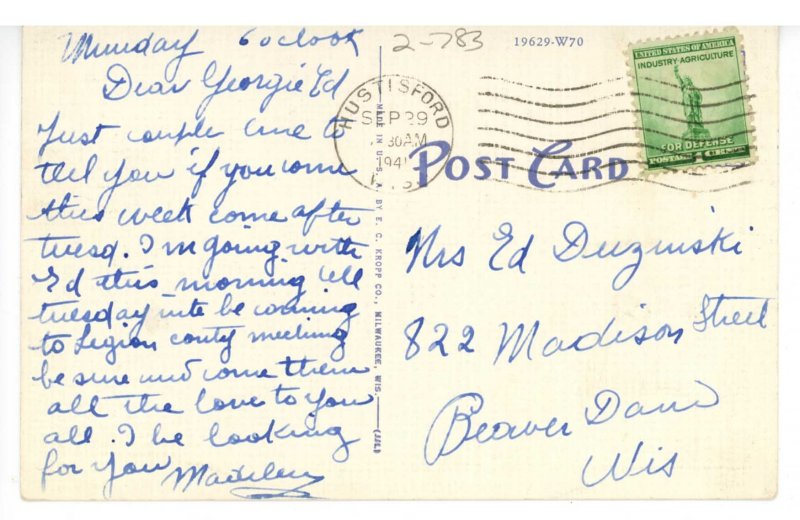 Munday 6 oclook
Dear Georgie Ed
Just couple line to
tell you if you come
this week come after
tuesd. I'm going with
Ed this morning till
tuesday nite be coming
to Legion conty meeting
be sure and come then
all the love to you
all. I be looking
for you Madilen
2-783
19629-W70
HUSTISFORD
SEP 29
30AM
194
WIS
UNITED STATES OF AMERICA
INDUSTRY·AGRICULTURE
FOR DEFENSE
POSTAGE 1 CENT
POST CARD
MADE IN U. S. A. BY E. C. KROPP CO., MILWAUKEE, WIS.
Mrs Ed Duzinski
822 Madison Street
Beaver Dam
Wis